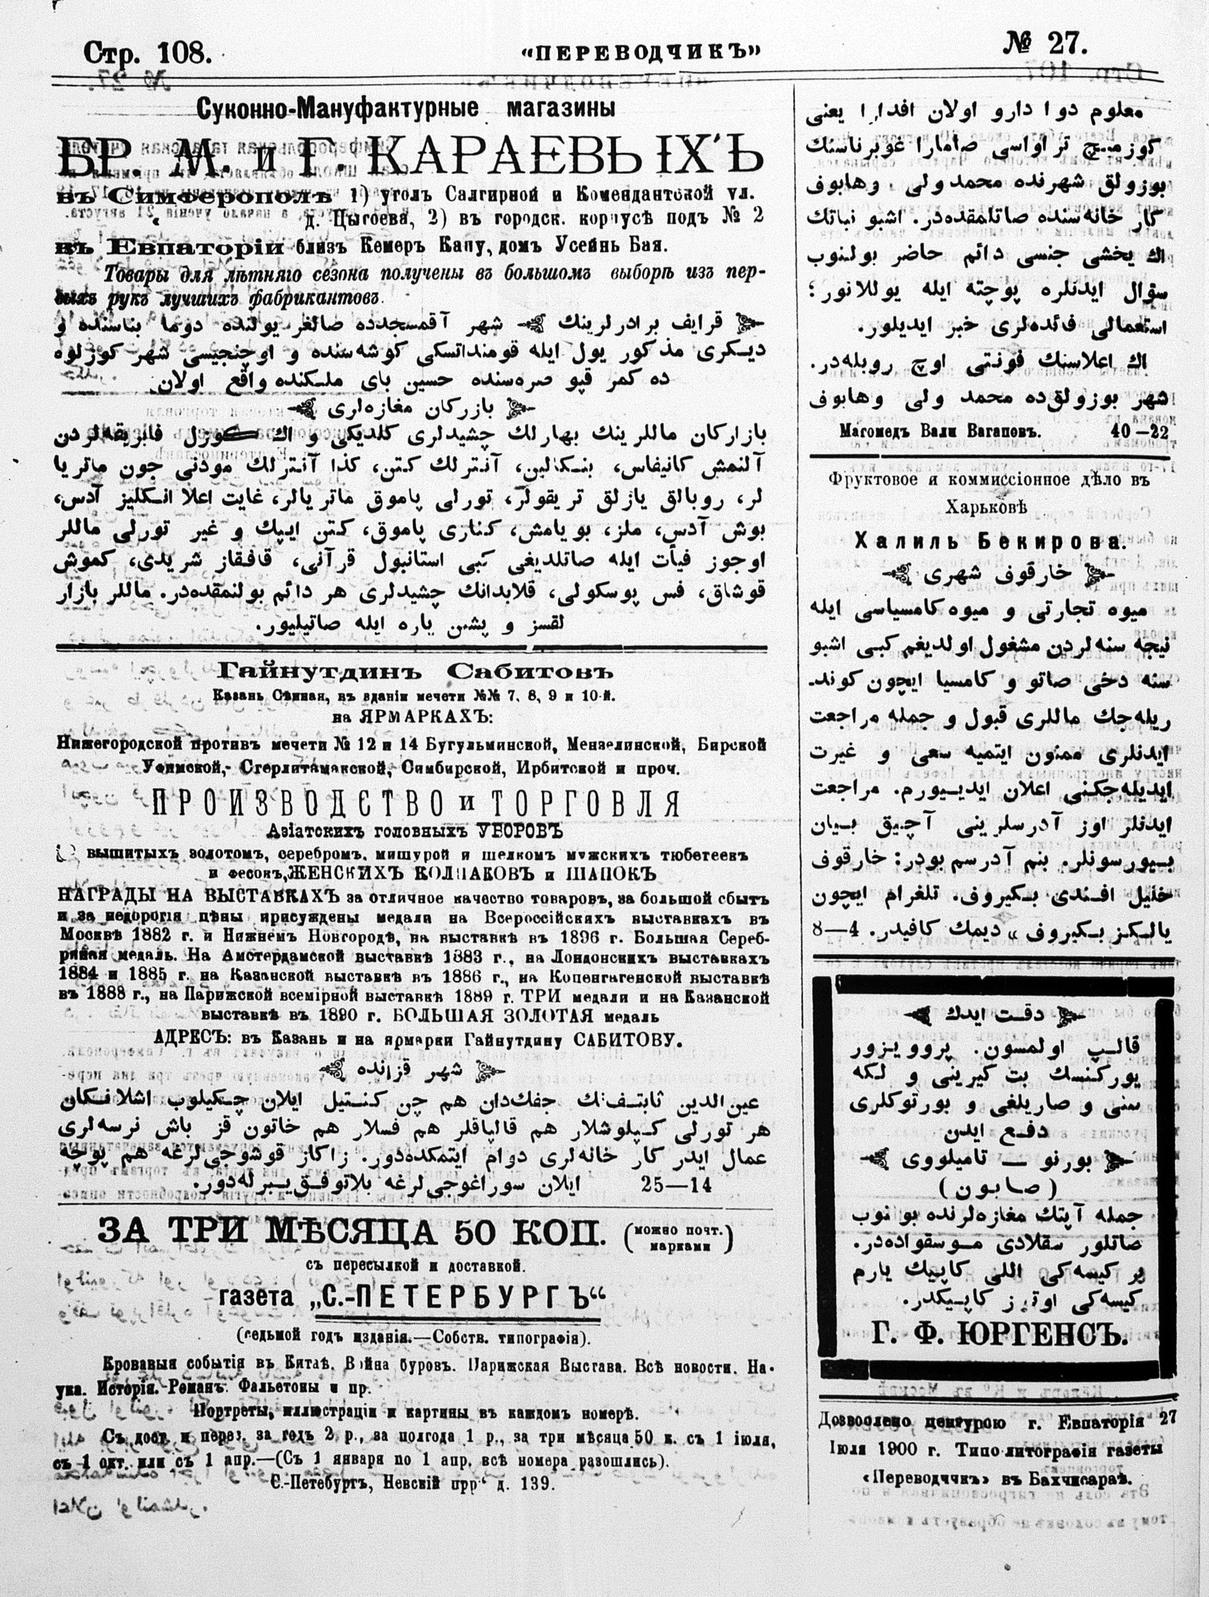 Стр. 108.
«ПЕРЕВОДЧИКЪ»
№ 27.
Суконно-Мануфактурные магазины
БР. М. и Г. КАРАЕВЫХЪ
въ Симферополѣ 1) уголъ Салгирной и Комендантской ул.
д. Цыгоева, 2) въ городск. корпусѣ подъ № 2
въ Евпаторіи близъ Кемеръ Капу, домъ Усеинъ Бая.
Товары для лѣтняго сезона получены въ большомъ выборѣ изъ пер-
выхъ рукъ лучшихъ фабрикантовъ.
قرايف برادرلرينك شهر آقمسجدده صالغر يولنده دوما بناسنده و
ديكرى مذكور يول ايله قومنداتسكى كوشه‌سنده و اوچنجيسى شهر كوزلوه
ده كمر قپو صره‌سنده حسين باى ملكنده واقع اولان
بازركان مغازه‌لرى
بازاركان ماللرينك بهارلك چشيدلرى كلديكى و اك كوزل فابريقه‌لردن
آلنمش كانيفاس، بنكالين، آنترلك كتن، كذا آنترلك مودنى جون ماتريا
لر، روبالق يازلق تريقولر، تورلى پاموق ماتريالر، غايت اعلا انكليز آدس،
بوش آدس، ملز، بويامش، كنارى پاموق، كتن ايپك و غير تورلى ماللر
اوجوز فيأت ايله صاتلديغى كبى استانبول قرآنى، قافقاز شريدى، كموش
قوشاق، فس پوسكولى، قلابدانك چشيدلرى هر دائم بولنمقده‌در. ماللر بازار
لقسز و پشين پاره ايله صاتيليور.
Гайнутдинъ Сабитовъ
Казань Сѣнная, въ зданіи мечети №№ 7, 8, 9 и 10-й.
на ЯРМАРКАХЪ:
Нижегородской противъ мечети № 12 и 14 Бугульминской, Мензелинской, Бирской
Уфимской, Стерлитамакской, Симбирской, Ирбитской и проч.
ПРОИЗВОДСТВО и ТОРГОВЛЯ
Азіатскихъ головныхъ УБОРОВЪ
вышитыхъ золотомъ, серебромъ, мишурой и шелкомъ мужскихъ тюбетеевъ
и фесокъ, ЖЕНСКИХЪ КОЛПАКОВЪ и ШАПОКЪ
НАГРАДЫ НА ВЫСТАВКАХЪ за отличное качество товаровъ, за большой сбытъ
и за недорогія цѣны присуждены медали на Всероссійскихъ выставкахъ въ
Москвѣ 1882 г. и Нижнемъ Новгородѣ, на выставкѣ въ 1896 г. Большая Сереб-
ряная медаль. На Амстердамской выставкѣ 1883 г., на Лондонскихъ выставкахъ
1884 и 1885 г. на Казанской выставкѣ въ 1886 г., на Копенгагенской выставкѣ
въ 1888 г., на Парижской всемірной выставкѣ 1889 г. ТРИ медали и на Казанской
выставкѣ въ 1890 г. БОЛЬШАЯ ЗОЛОТАЯ медаль
АДРЕСЪ: въ Казань и на ярмарки Гайнутдину САБИТОВУ.
شهر قزانده
عين‌الدين ثابتف‌نك جفك‌دان هم چن كنتيل ايلان چكيلوب اشلانكان
هر تورلى كپلوشلار هم قالپاقلر هم فسلار هم خاتون قز باش نرسه‌لرى
عمال ايدر كار خانه‌لرى دوام ايتمكده‌دور. زاكاز قوشوجى‌لرغه هم پوچه
ايلان سوراغوجى‌لرغه بلاتوفق يبرله‌دور. 14—25
ЗА ТРИ МѢСЯЦА 50 КОП. (можно почт. марками)
съ пересылкой и доставкой.
газета „С.-ПЕТЕРБУРГЪ“
(седьмой годъ изданія.—Собств. типографія).
Кровавыя событія въ Китаѣ. Война буровъ. Парижская Выставка. Всѣ новости. На-
ука. Исторія. Романъ. Фальетоны и пр.
Портреты, иллюстраціи и картины въ каждомъ номерѣ.
Съ дост. и перез. за годъ 2 р., за полгода 1 р., за три мѣсяца 50 к. съ 1 іюля,
съ 1 окт. или съ 1 апр.—(Съ 1 января по 1 апр. всѣ номера разошлись).
С.-Петебургъ, Невскій пр. д. 139.
معلوم دوا دارو اولان افدرا يعنى
كوزميچ تراواسى صامارا غوبرناسنك
بوزولق شهرنده محمد ولى وهابوف
كار خانه‌سنده صاتلمقده‌در. اشبو نباتك
اك يخشى جنسى دائم حاضر بولنوب
سؤال ايدنلره پوچته ايله يوللانور؛
استعمالى فائده‌لرى خبر ايديلور.
اك اعلاسنك فونتى اوچ روبله‌در.
شهر بوزولق‌ده محمد ولى وهابوف
Магомедъ Вали Вагаповъ. 40—22
Фруктовое и коммиссіонное дѣло въ
Харьковѣ
Халиль Бекирова.
خارقوف شهرى
ميوه تجارتى و ميوه كامسياسى ايله
نيچه سنه‌لردن مشغول اولديغم كبى اشبو
سنه دخى صاتو و كامسيا ايچون كوند‌
ريله‌جك ماللرى قبول و جمله مراجعت
ايدنلرى ممنون ايتميه سعى و غيرت
ايديله‌جكنى اعلان ايديسيورم. مراجعت
ايدنلر اوز آدرسلرينى آچيق بيان
بيورسونلر. بنم آدرسم بودر: خارقوف
خليل افندى بكيروف. تلغرام ايچون
يالكز بكيروف» ديمك كافيدر. 4—8
دقت ايدك
قالپ اولمسون. پروويزور
يوركنسك بت كيرينى و لكه
سنى و صاريلغى و بورتوكلرى
دفع ايدن
بورنو — تاميلووى
(صابون)
جمله آپتك مغازه‌لرنده بولنوب
صاتلور سقلادى موسقواده‌در.
بر كيسه‌كى اللى كاپيك يارم
كيسه‌كى اوتوز كاپيكدر.
Г. Ф. ЮРГЕНСЪ.
Дозволено цензурою г. Евпаторія 27
Іюля 1900 г. Типо литографія газеты
«Переводчикъ» въ Бахчисараѣ.